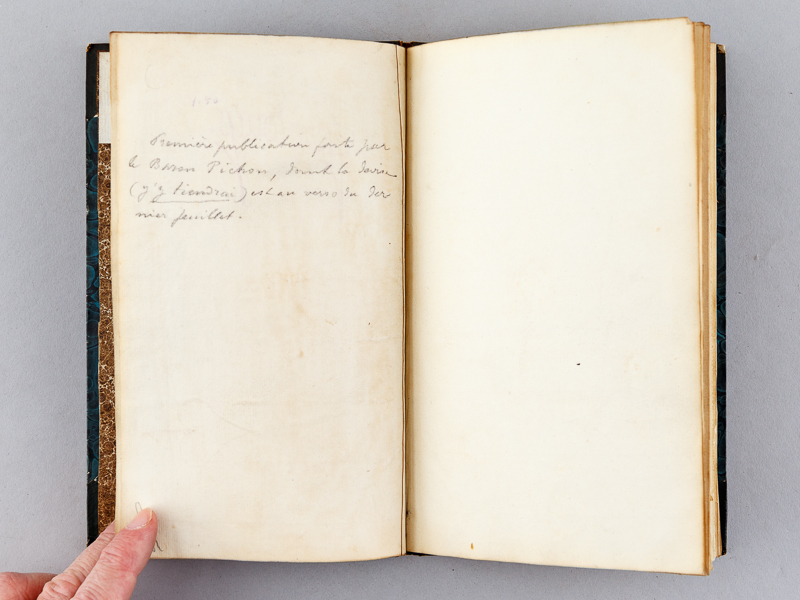 Première publication faite par
le Baron Pichon, dont la devise
(j'y tiendrai) est au verso du der
nier feuillet.